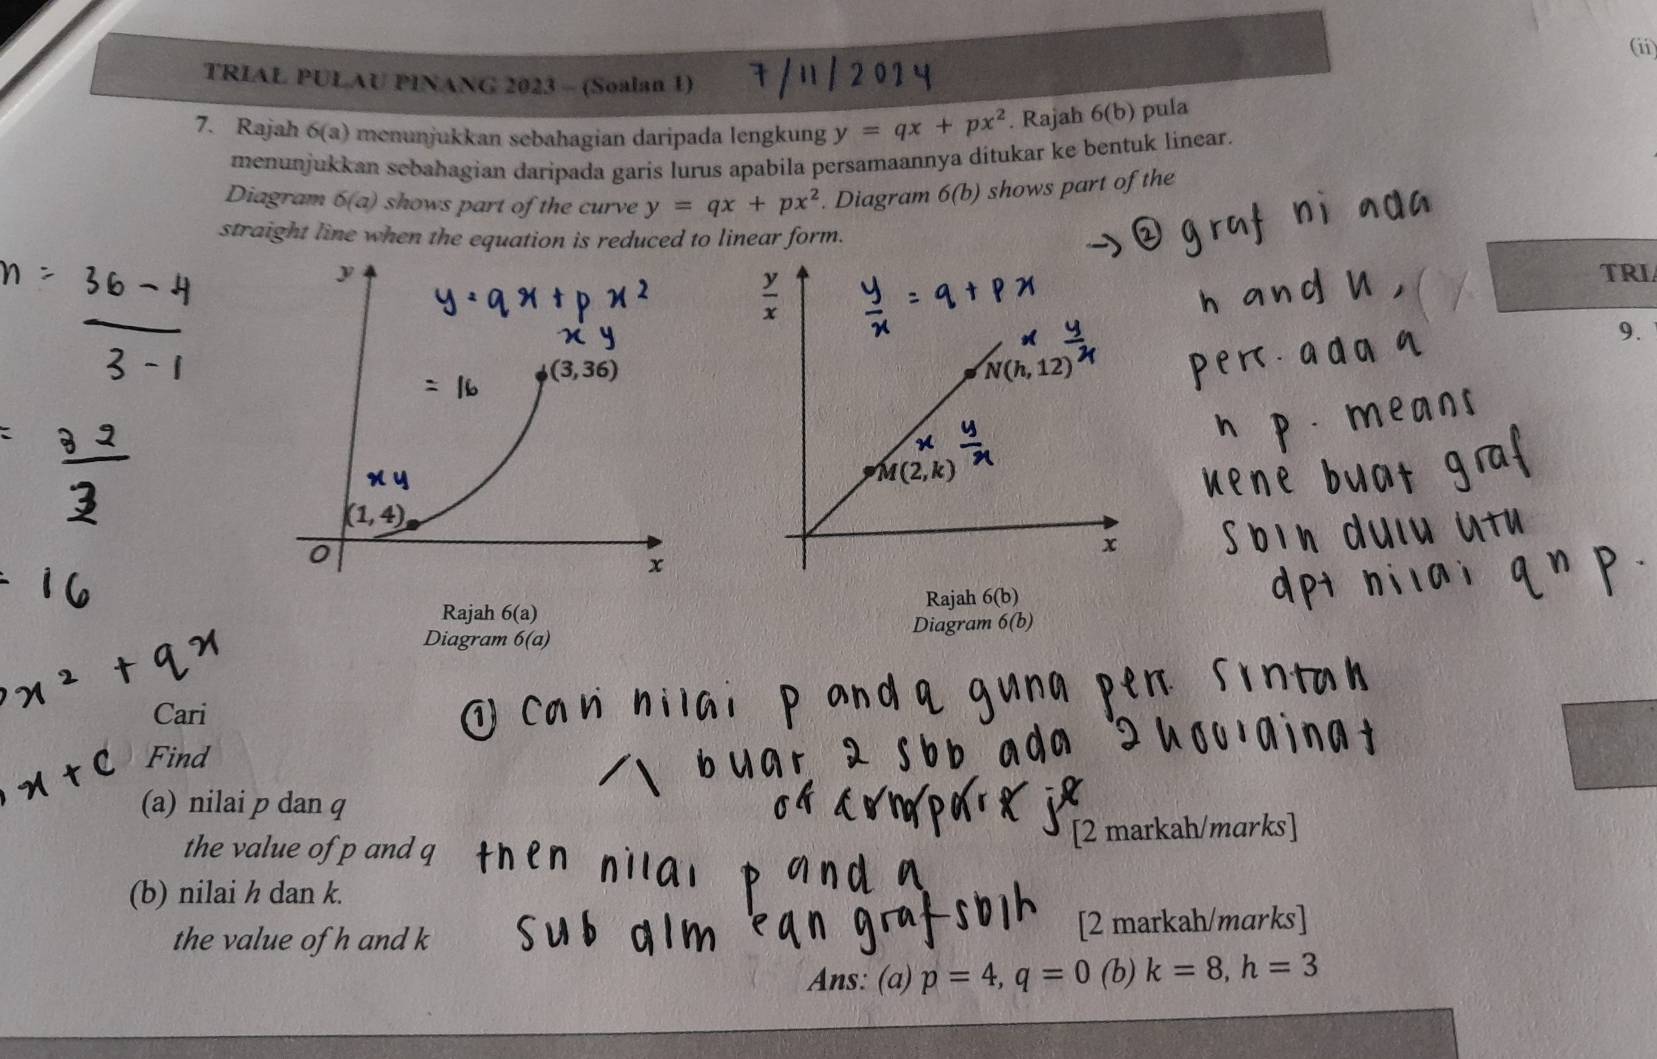 (ii)
TRIAL PULAU PINANG 2023 – (Soalan 1) 7/11/2024
7. Rajah 6(a) menunjukkan sebahagian daripada lengkung y = qx + px². Rajah 6(b) pula
menunjukkan sebahagian daripada garis lurus apabila persamaannya ditukar ke bentuk linear.
Diagram 6(a) shows part of the curve y = qx + px². Diagram 6(b) shows part of the
straight line when the equation is reduced to linear form.
→ ② graf ni ada
h and k,
perc. ada q
n p. means
kene buat graf
sbln dulu utk
dpt nilai q n p.
TRI
9.
= 36 - 4
3 - 1
= 32
2
= 16
y
y = qx + px²
x y
= 16
(3, 36)
x y
(1, 4)
O
x
y/x
y/x = q + px
x y/x
N(h, 12)
x y/x
M(2, k)
x
Rajah 6(a)
Diagram 6(a)
Rajah 6(b)
Diagram 6(b)
x² + qx
x + c
① cari nilai p and q guna perc.
buat 2 sbb ada 2 koordinat
then nilai p and q
sub dlm
Cari
Find
(a) nilai p dan q
the value of p and q
[2 markah/marks]
(b) nilai h dan k.
the value of h and k
[2 markah/marks]
Ans: (a) p = 4, q = 0 (b) k = 8, h = 3